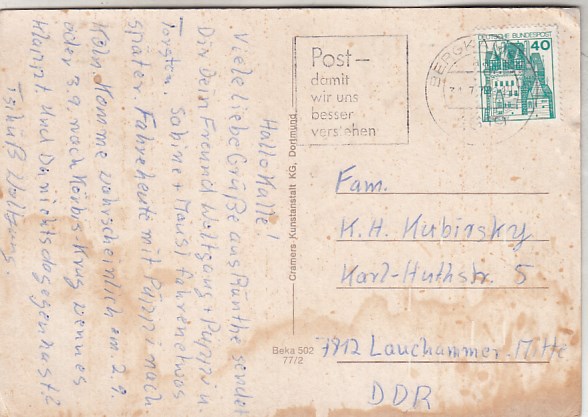 Hallo Kalle!
Viele liebe Grüße aus Rünthe sendet
Dir Dein Freund Wolfgang + Puppi u.
Torsten. Sabine + Mausi fahren etwas
später. Fahre heute mit Puppi nach
Köln. Komme wahrscheinlich am 2.9.
oder 3.9. nach Körbis Krug wenn es
klappt und Du nichts dagegen hast?
Tschüß Wolfgang.
Cramers Kunstanstalt KG, Dortmund
Beka 502
77/2
Post–
damit
wir uns
besser
verstehen
BERGKAMEN
DEUTSCHE BUNDESPOST
40
Fam.
K.H. Kubirsky
Karl-Huthstr. 5
7812 Lauchhammer-Mitte
DDR